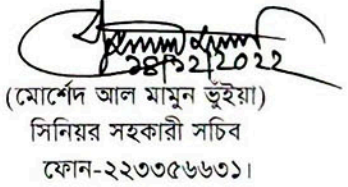 ১৪/১২/২০২২
(মোর্শেদ আল মামুন ভূঁইয়া)
সিনিয়র সহকারী সচিব
ফোন-২২৩৩৫৬৬৩১।